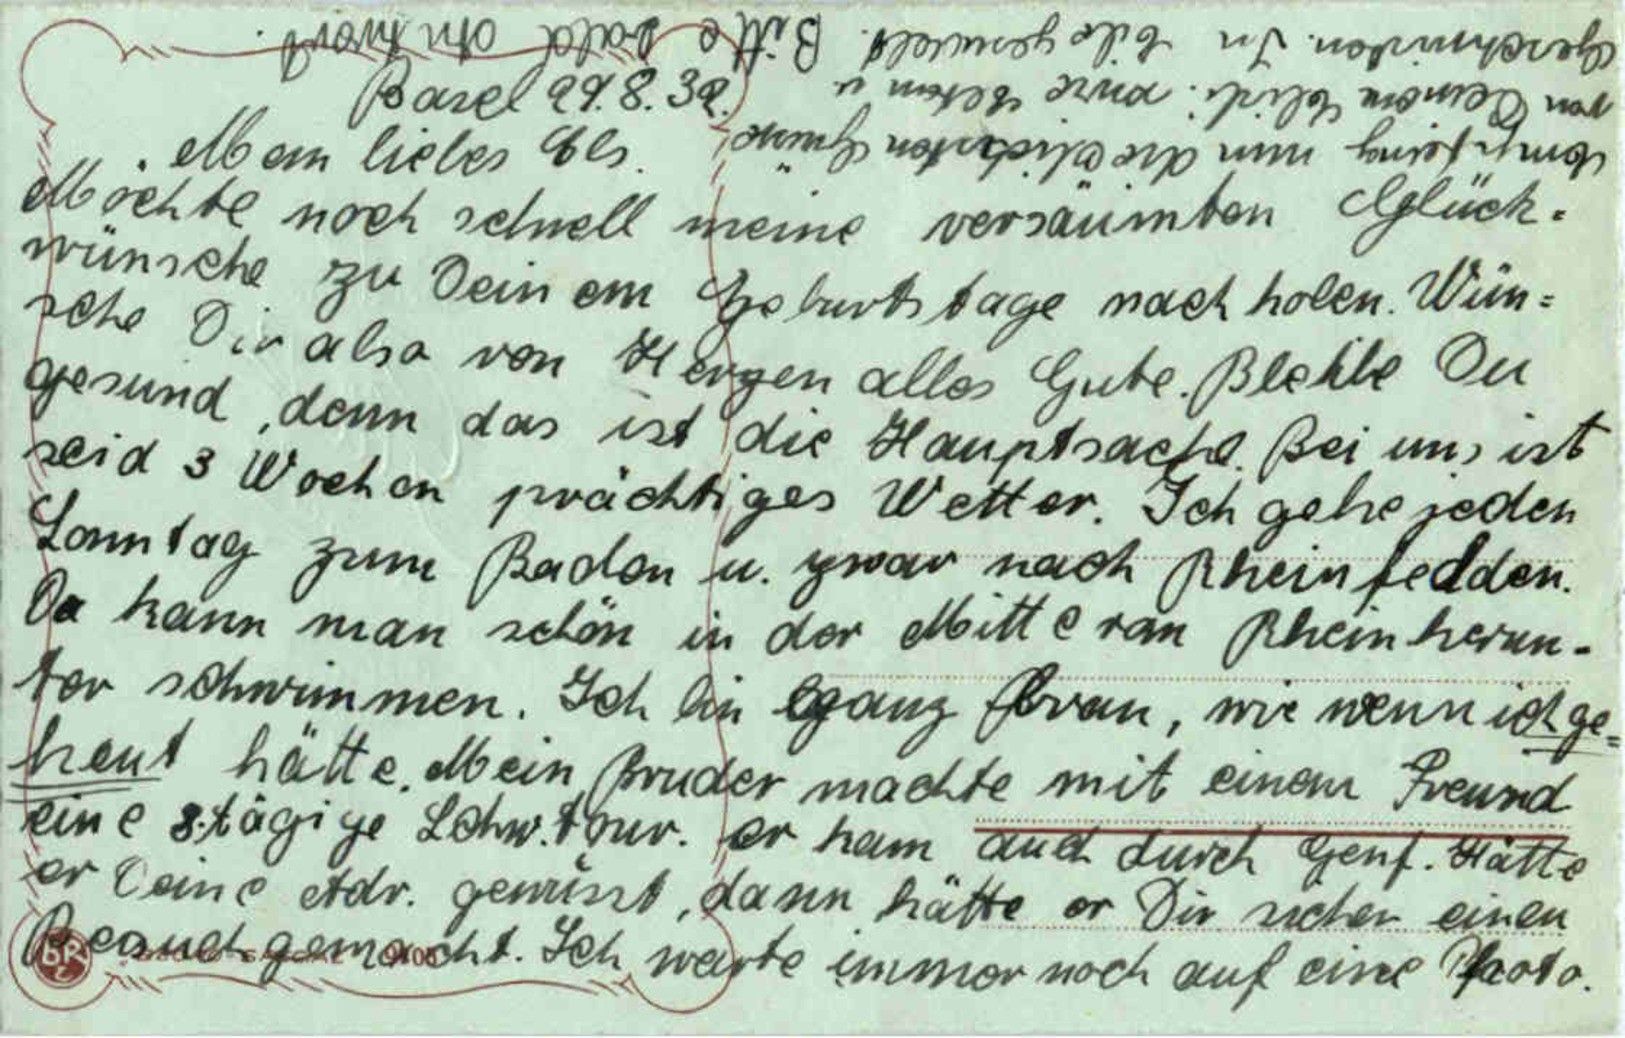 Basel 29.8.32.
Mein liebes Els.
Möchte noch schnell meine versäumten Glück-
wünsche zu Deinem Geburtstage nach holen. Wün-
sche Dir also von Herzen alles Gute. Bleibe Du
gesund, denn das ist die Hauptsache. Bei uns ist
seid 3 Wochen prächtiges Wetter. Ich gehe jeden
Sonntag zum Baden u. zwar nach Rheinfelden.
Da kann man schön in der Mitte vom Rhein herun-
ter schwimmen. Ich bin ganz braun, wie wenn ich ge-
heut hätte. Mein Bruder machte mit einem Freund
eine 8.tägige Schw. tour. er kam auch durch Genf. Hätte
er Deine Adr. gewüsst, dann hätte er Dir sicher einen
Besuch gemacht. Ich warte immer noch auf eine Photo.
Empfang nun die Grüsse
von Deinem sowie Eltern u
Geschwister. In Eile gemacht. Bitte bald Antwort.
BR